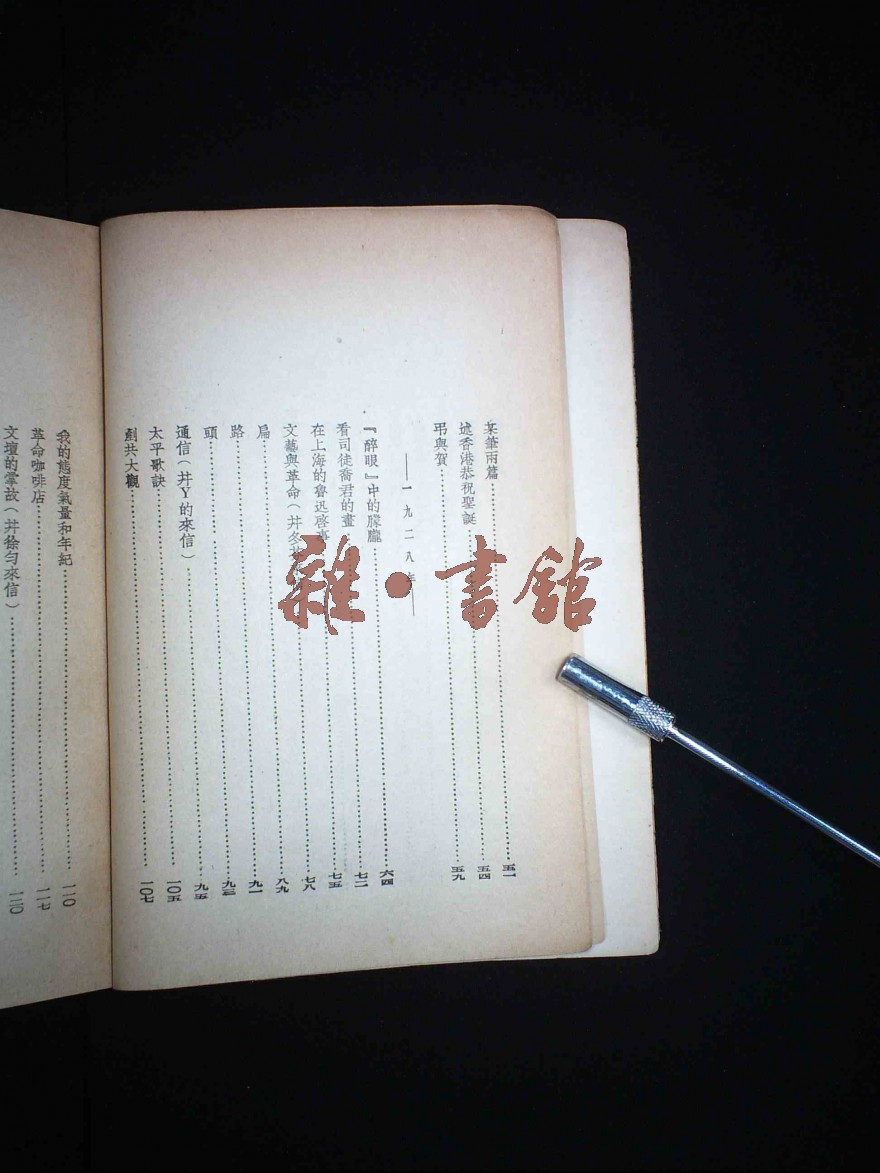 某筆兩篇……五一
述香港恭祝聖誕……五四
弔與賀……五九
——一九二八年——
『醉眼』中的朦朧……六四
看司徒喬君的畫……七二
在上海的魯迅啓事……七五
文藝與革命(幷冬……七八
扁……八九
路……九一
頭……九三
通信(幷Y的來信)……九五
太平歌訣……一〇五
剷共大觀……一〇七
我的態度氣量和年紀……一一〇
革命咖啡店……一一七
文壇的掌故(幷徐勻來信)……一二〇
雜·書館